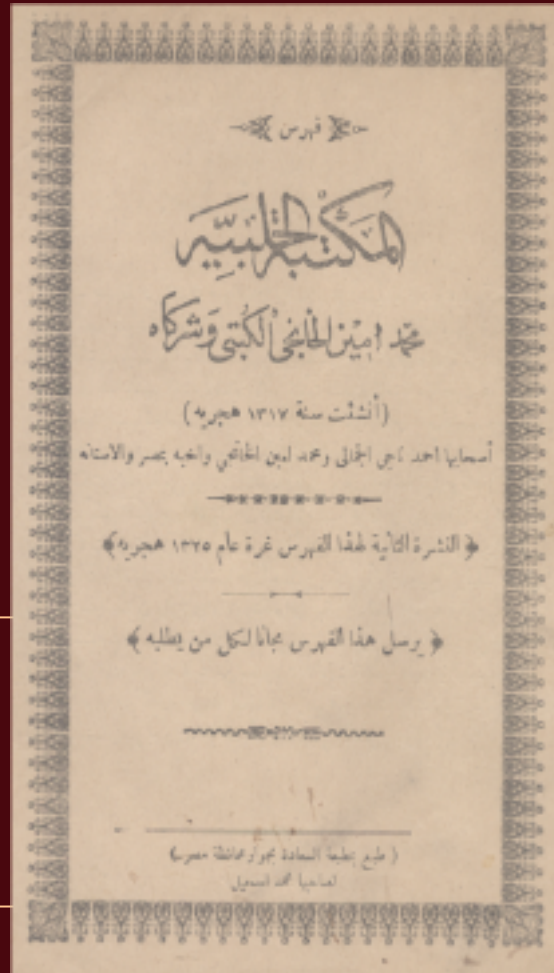 فهرس
المكتبة الحلبيه
محمد امين الخانجي الكتبي وشركاه
(أنشئت سنة ١٣١٧ هجريه)
أصحابها احمد ناجي الجمالي ومحمد امين الخانجي واخيه بمصر والاستانه
﴿ النشرة الثانية لهذا الفهرس غرة عام ١٣٢٥ هجريه ﴾
﴿ يرسل هذا الفهرس مجانا لكل من يطلبه ﴾
( طبع بمطبعة السعادة بجوار محافظة مصر )
لصاحبها محمد اسمعيل